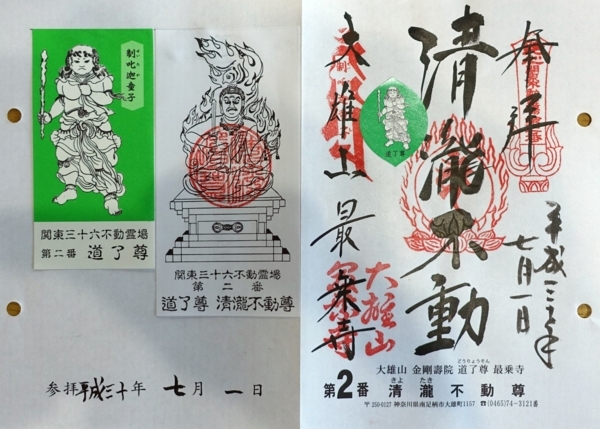 制吒迦童子
せいたか
関東三十六不動霊場
第二番 道了尊
関東三十六不動霊場
第二番
道了尊 清瀧不動尊
参拝平成三十年 七月 一日
奉拝
平成三十年
七月一日
清瀧不動
大雄山 最乗寺
道了尊
大雄山
大雄山 金剛壽院 道了尊 最乗寺
どうりょうそん
第2番 清瀧不動尊
きよ たき
〒250-0127 神奈川県南足柄市大雄町1157 ☎(0465)74-3121番